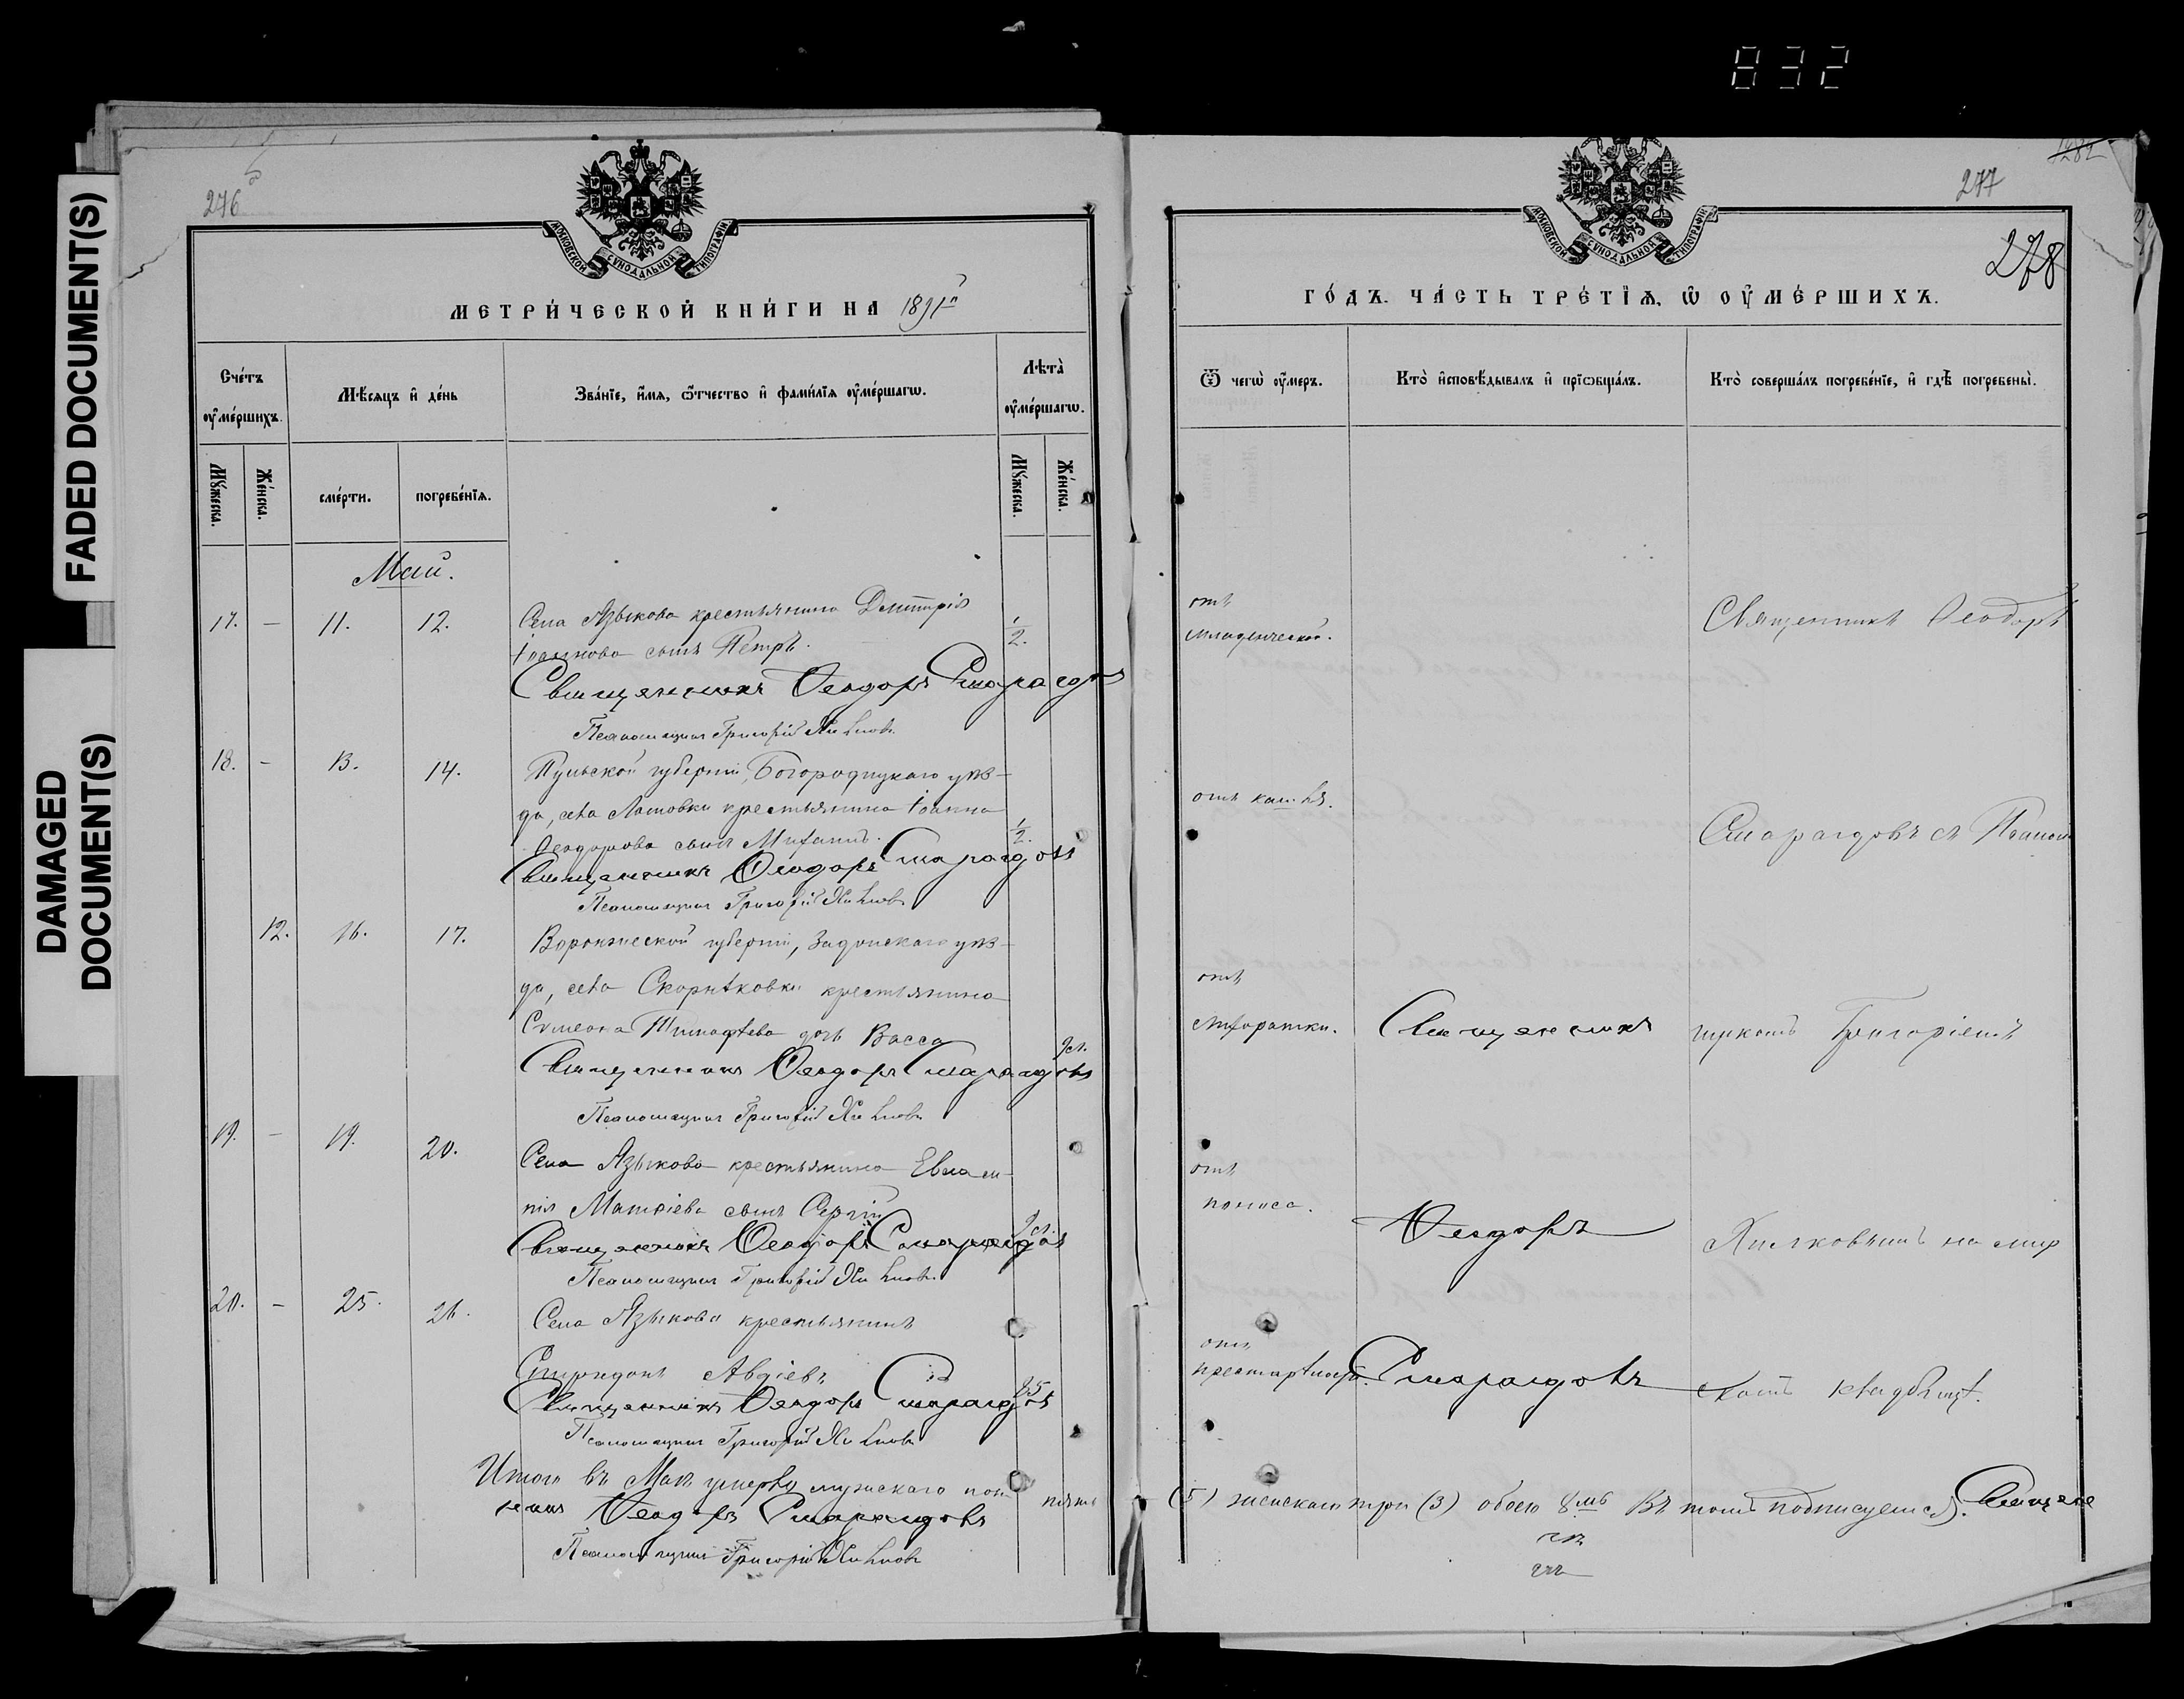 832
FADED DOCUMENT(S)
DAMAGED
DOCUMENT(S)
276
МОСКОВСКОЙ СѴНОДАЛЬНОЙ ТИПОГРАФІИ
МЕТРИ́ЧЕСКОЙ КНИ́ГИ НА 1891й
Сче́тъ ᲂу҆ме́ршихъ.
Мѣ́сѧцъ и҆ де́нь
Зва́нїе, и҆́мѧ, ѻ҆́тчество и҆ фами́лїѧ ᲂу҆ме́ршагѡ.
Лѣта̀ ᲂу҆ме́ршагѡ.
Мꙋ́жеска.
Же́нска.
сме́рти.
погребе́нїѧ.
Мꙋ́жеска.
Же́нска.
Май.
17. — 11. 12. Села Языкова крестьянина Димитрія 1/2.
Іоаннова сынъ Петръ.
Священникъ Ѳеодоръ Смарагдовъ
Псаломщикъ Григорій
18. — 13. 14. Тульской губерніи, Богородицкаго уѣз-
да, села крестьянина Іоанна
Ѳеодорова сынъ Михаилъ. 1/2.
Священникъ Ѳеодоръ Смарагдовъ
Псаломщикъ Григорій
12. 16. 17. Воронежской губерніи, Задонскаго уѣз-
да, села крестьянина
Сѵмеона Тимоѳѣева дочь Васса
Священникъ Ѳеодоръ Смарагдовъ
Псаломщикъ Григорій
19. — 19. 20. Села Языкова крестьянина Евлам-
пія Матѳіева сынъ Сергій
Священникъ Ѳеодоръ Смарагдовъ
Псаломщикъ Григорій
20. — 25. 26. Села Языкова крестьянинъ
Спиридонъ Авдіевъ 85
Священникъ Ѳеодоръ Смарагдовъ
Псаломщикъ Григорій
Итого въ Маѣ умерло мужскаго пола пять
никъ Ѳеодоръ Смарагдовъ
Псаломщикъ Григорій
277
278
МОСКОВСКОЙ СѴНОДАЛЬНОЙ ТИПОГРАФІИ
ГО́ДЪ. ЧА́СТЬ ТРЕ́ТЇѦ, Ѡ҆ ОУ҆МЕ́РШИХЪ.
Ѿ чегѡ̀ ᲂу҆́меръ.
Кто̀ и҆сповѣ́дывалъ и҆ прїѡбща́лъ.
Кто̀ соверша́лъ погребе́нїе, и҆ гдѣ̀ погребены̀.
отъ
младенческой.
Священникъ Ѳеодоръ
отъ кашля.
Смарагдовъ съ Псалом
отъ
Священникъ
щикомъ Григоріемъ
отъ
поноса.
Ѳеодоръ
на мір
отъ
престарѣлости.
Смарагдовъ
скомъ кладбищѣ.
(5) женскаго три (3) обоего 8мь Въ томъ подписуемся. Священ